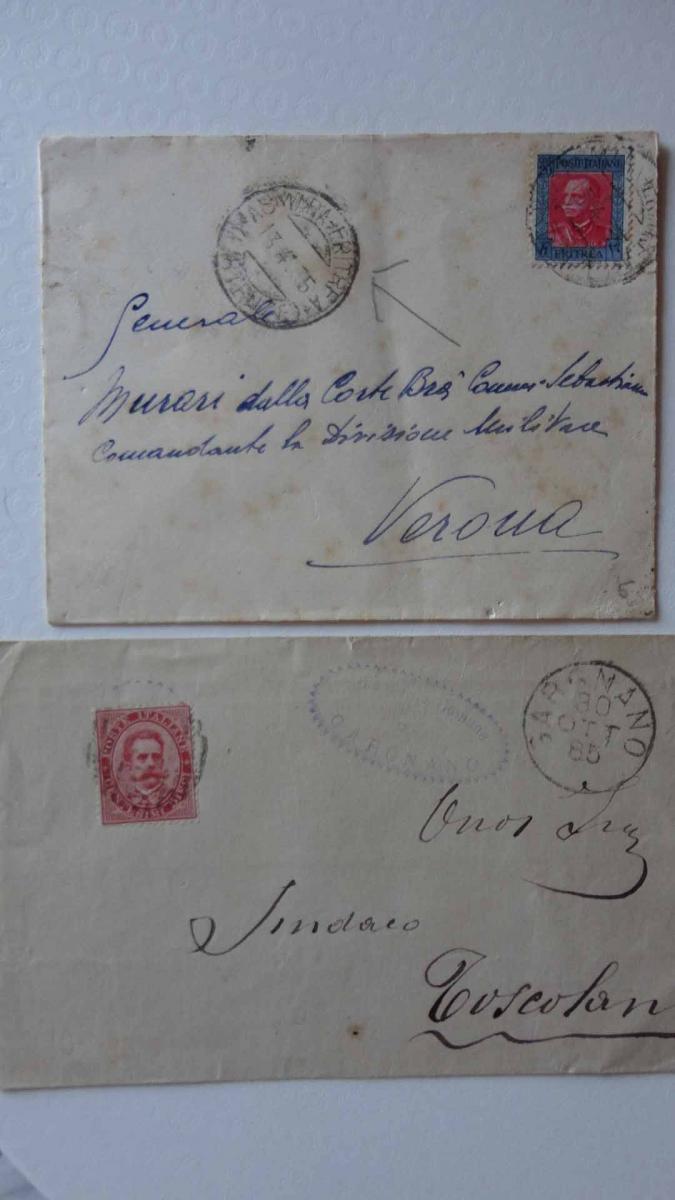 POSTE ITALIANE
ERITREA
ASMARA-ERITREA
Generale
Murari dalla Corte Brà Comm. Sebastiano
Comandante la Divisione Militare
Verona
POSTE ITALIANE
GARGNANO
GARGNANO
30
OTT
85
Onor
Sindaco
Toscolan